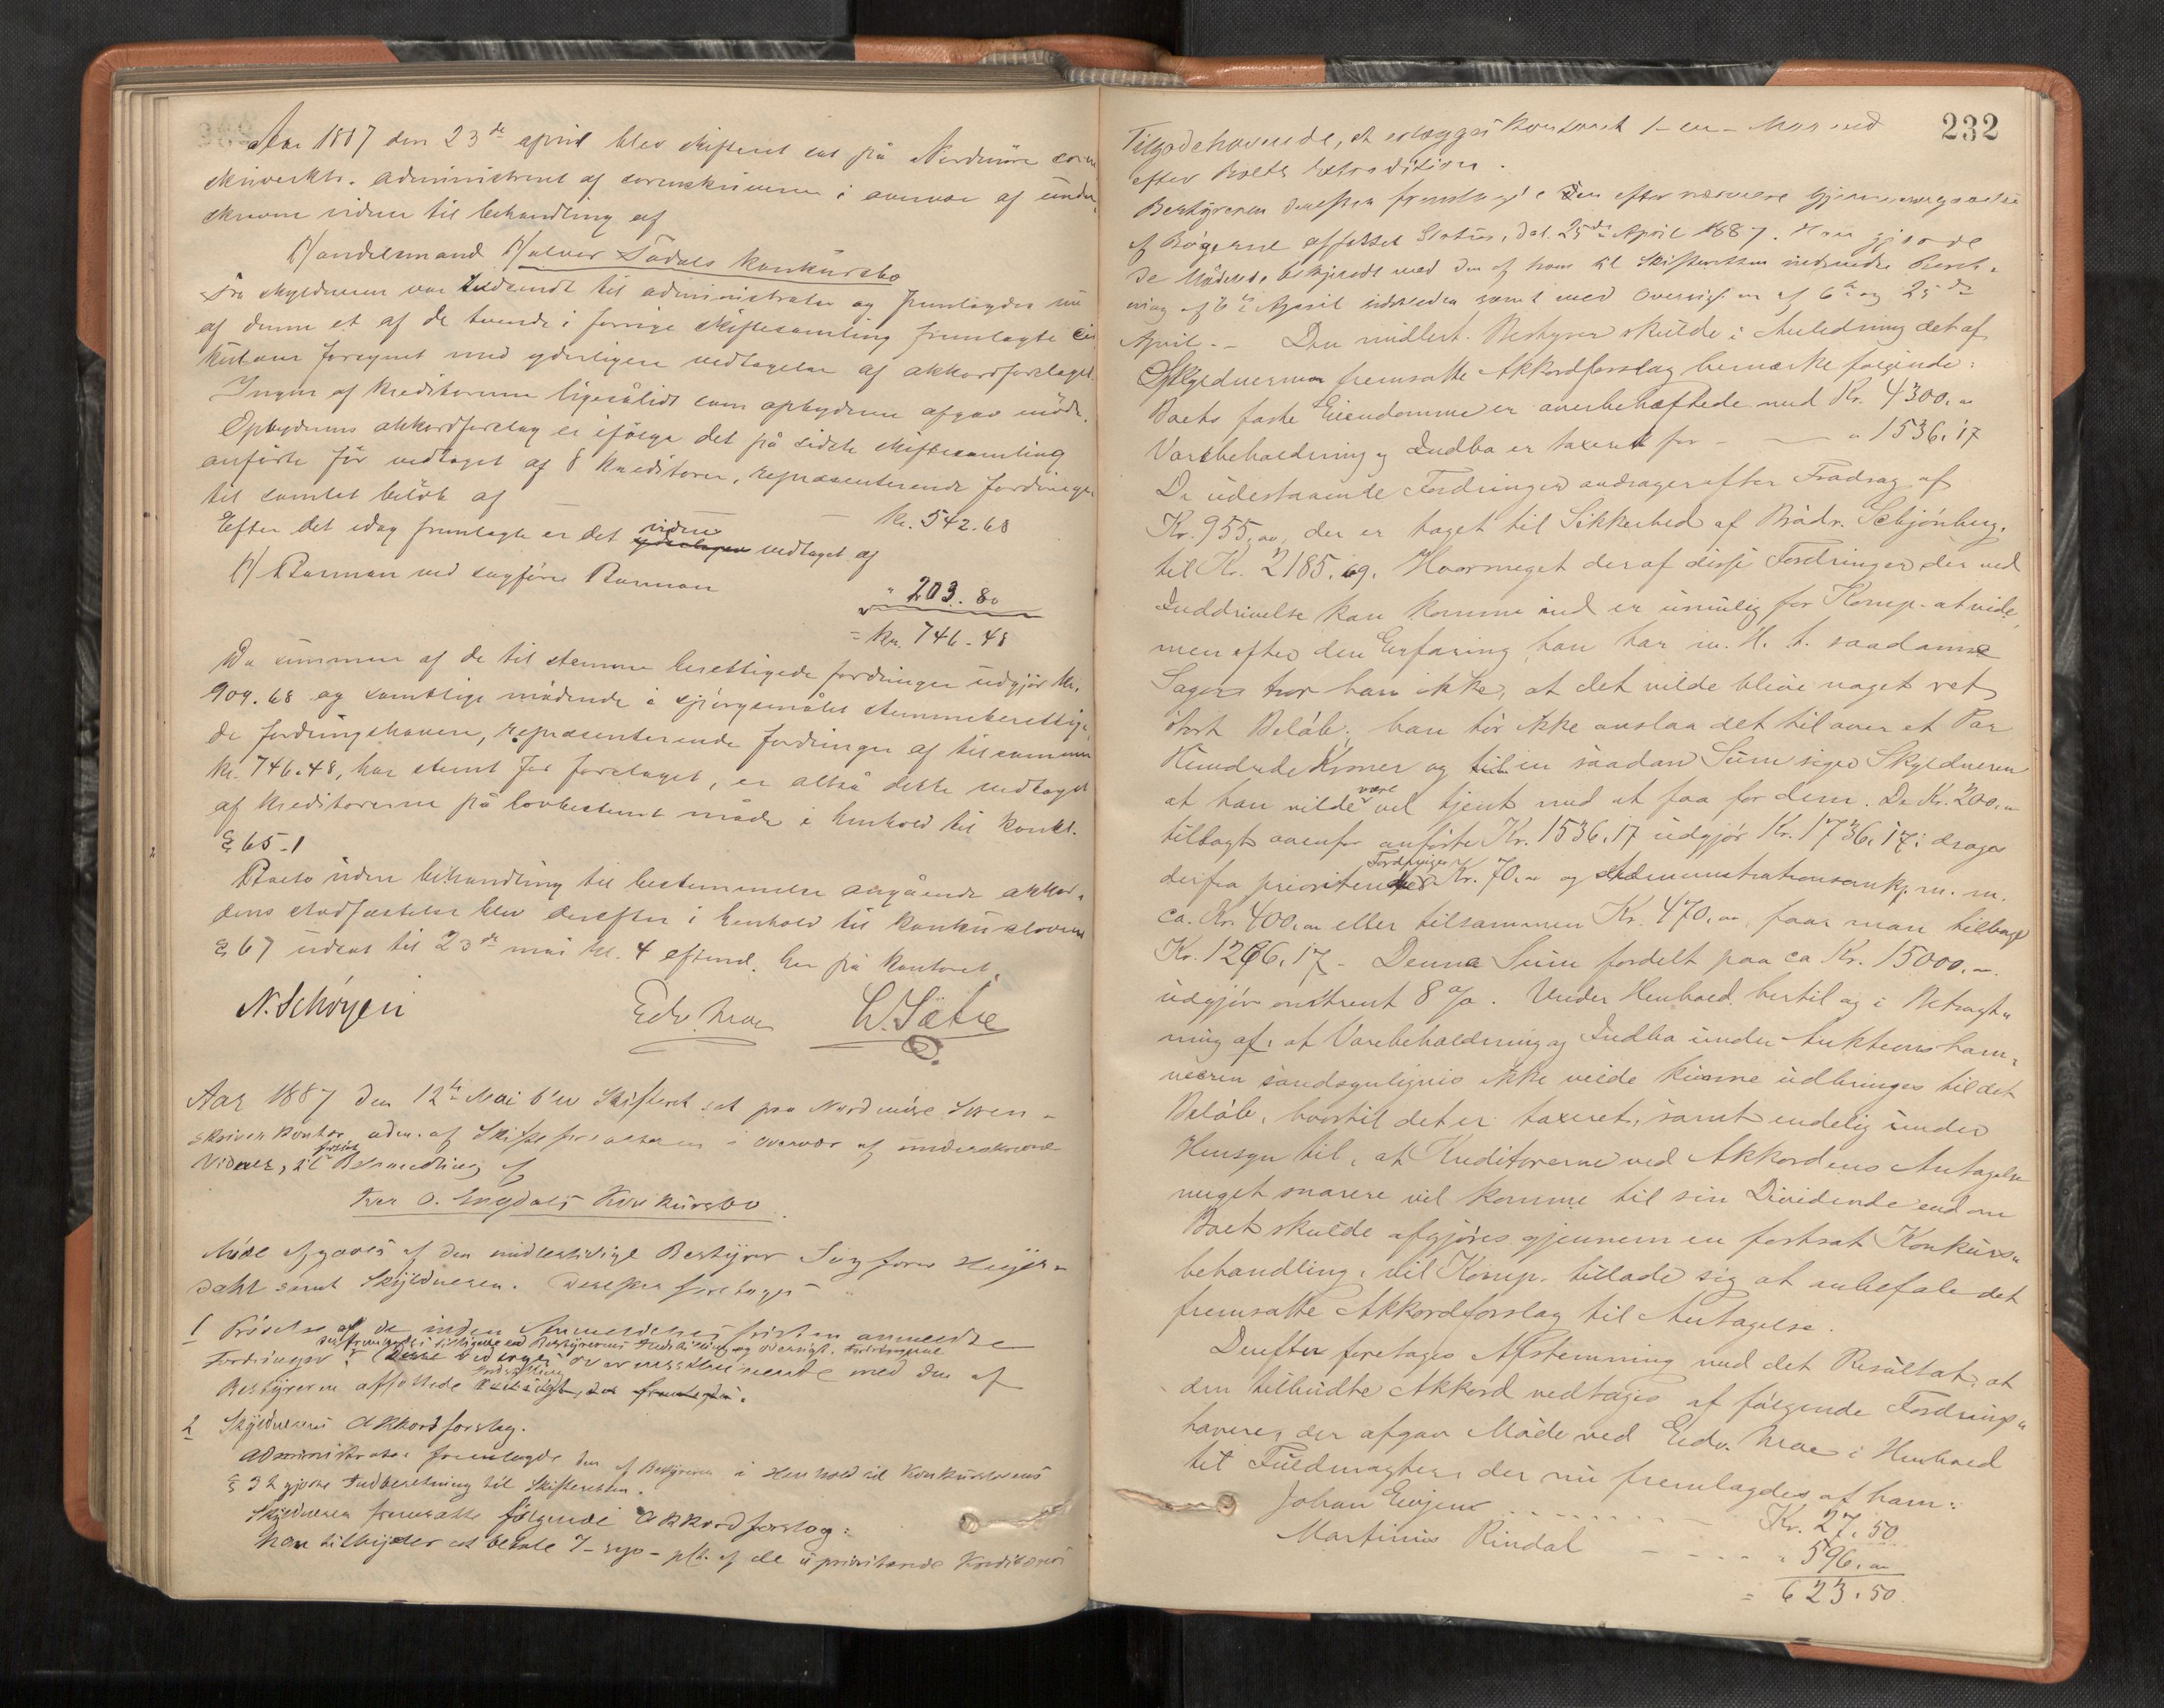 Aar 1887 den 23de april blev skifteret sat på Nordmöre soren
skriverktr. administreret af sorenskriveren i overvær af under,
skrevne vidner til behandling af
Handelsmand Halvor Sødals konkursbo
Fra skyldneren var indsendt til administrator og fremlagdes nu
af denne et af de tvende i forrige skiftesamling fremlagte cir
kulærer foregnet med yderligere vedtagelse af akkordforslaget.
Ingen af kreditorerne ligesålidt som opbyderen afgav möde.
Opbyderens akkordforslag er ifölge det på sidste skiftesamling
anførte før vedtaget af 8 kreditorer, repræsenterende fordringer
til samlet belöb af kr. 542.68
Efter det idag fremlagte er det viden vedtaget af
H Barman ved sagfører Barman
" 203.80
= kr. 746.48
Da summen af de til stemme berettigede fordringer udgjör kr.
909.68 og samtlige mødende i spørgsmålet stemmeberettige,
de fordringshavere, repræsenterende fordringer af tilsammen
kr. 746.48, har stemt for forslaget, er altså dette vedtaget
af kreditorerne på lovbestemt måde i henhold til konkl.
§ 65-1
Boets videre behandling til bestemmelse angående akkor,
dens stadfæstelse blev derefter i henhold til konkursloven
§ 67 udsat til 23de mai kl. 4 efterm. her på kontoret.
N. Schöyen Edv. Moe L. Sæter
Aar 1887 den 12te Mai blev Skifteret sat paa Nordmøre Soren-
skriverkontor, adm. af Skifteforvalteren i Overvær af underskrevne
Vidner, til
Behandling af
Iver O. Engdals Konkursbo.
Møde afgaves af den midlertidige Bestyrer Sagfører Heyer-
dahl samt Skyldneren. Derefter foretoges
1 Prøvelse af de inden Anmeldelsesfristen anmeldte
Fordringer overensstemmende med den af
Bestyreren affattede
2 Skyldnerens Akkordforslag.
Administrator fremlagde den af Bestyreren i Henhold til Konkurslovens
§ 32 gjorte Indberetning til Skifteretten.
Skyldneren fremsatte følgende Akkordforslag:
Han tilbyder at betale 7- syv- pCt. af de uprioriterede Kreditorers
232
Tilgodehavende, at erlægges kontant 1- en- Maaned
efter Boets Extradition.
Bestyreren derefter fremlagde den efter nærmere Gjennemgaaelse
af Bøgerne affattet Status, dat. 25de April 1887. Han gjorde
de Mødende bekjendt med den af ham til Skifteretten indsendte Beret-
ning af 6te April sidstleden samt med Oversigten af 6te og 25de
April. - Den midlert. Bestyrer skulde i Anledning det af
Skyldneren fremsatte Akkordforslag bemærke følgende:
Boets faste Eiendomme er overbehæftede med Kr. 4300. "
Varebeholdning og Indbo er taxeret for - — " 1536.17
De udestaaende Fordringer andrager efter Fradrag af
Kr. 955.00, der er taget til Sikkerhed af Brødr. Schjönberg,
til Kr. 2185.69. Hvormeget der af disse Fordringer der ved
Inddrivelse kan komme ind er umulig for Komp. at vide,
men efter den Erfaring han har m. H. t. saadanne
Sager tror han ikke, at det vilde blive noget ret
stort Beløb; han tör ikke anslaa det til over et Par
Hundrede Kroner og en saadan Sum siger Skyldneren
at han vilde være vel tjent med at faa for dem. De Kr. 200."
tillagt ovenfor anförte Kr. 1536.17 udgjör Kr. 1736.17; drages
derfra prioriterede Fordringer Kr. 70." og Administrationsomk. m. m.
ca. Kr. 400.00 eller tilsammen Kr. 470.00, faar man tilbage
Kr. 1266.17 - Denne Sum fordelt paa ca Kr. 15000.-
udgjör omtrent 8 %. Under Henhold hertil og i Betragt„
ning af, at Varebeholdning og Indbo under Auktionsham„
meren sandsynligvis ikke vilde kunne udbringes til det
Beløb, hvortil det er taxeret, samt endelig under
Hensyn til, at Kreditorerne ved Akkordens Antagelse
meget snarere vil komme til sin Dividende end om
Boet skulde afgjöres gjennem en fortsat Konkurs„
behandling, vil Komp. tillade sig at anbefale det
fremsatte Akkordforslag til Antagelse.
Derefter foretages Afstemning med det Resultat, at
den tilbudte Akkord vedtages af fölgende Fordrings„
havere, der afgav Möde ved Edv. Moe i Henhold
til Fuldmagter, der nu fremlagdes af ham:
Johan Evjens ........ - Kr. 27.50
Martinius Rindal - - - - " 596.00
= 623.50